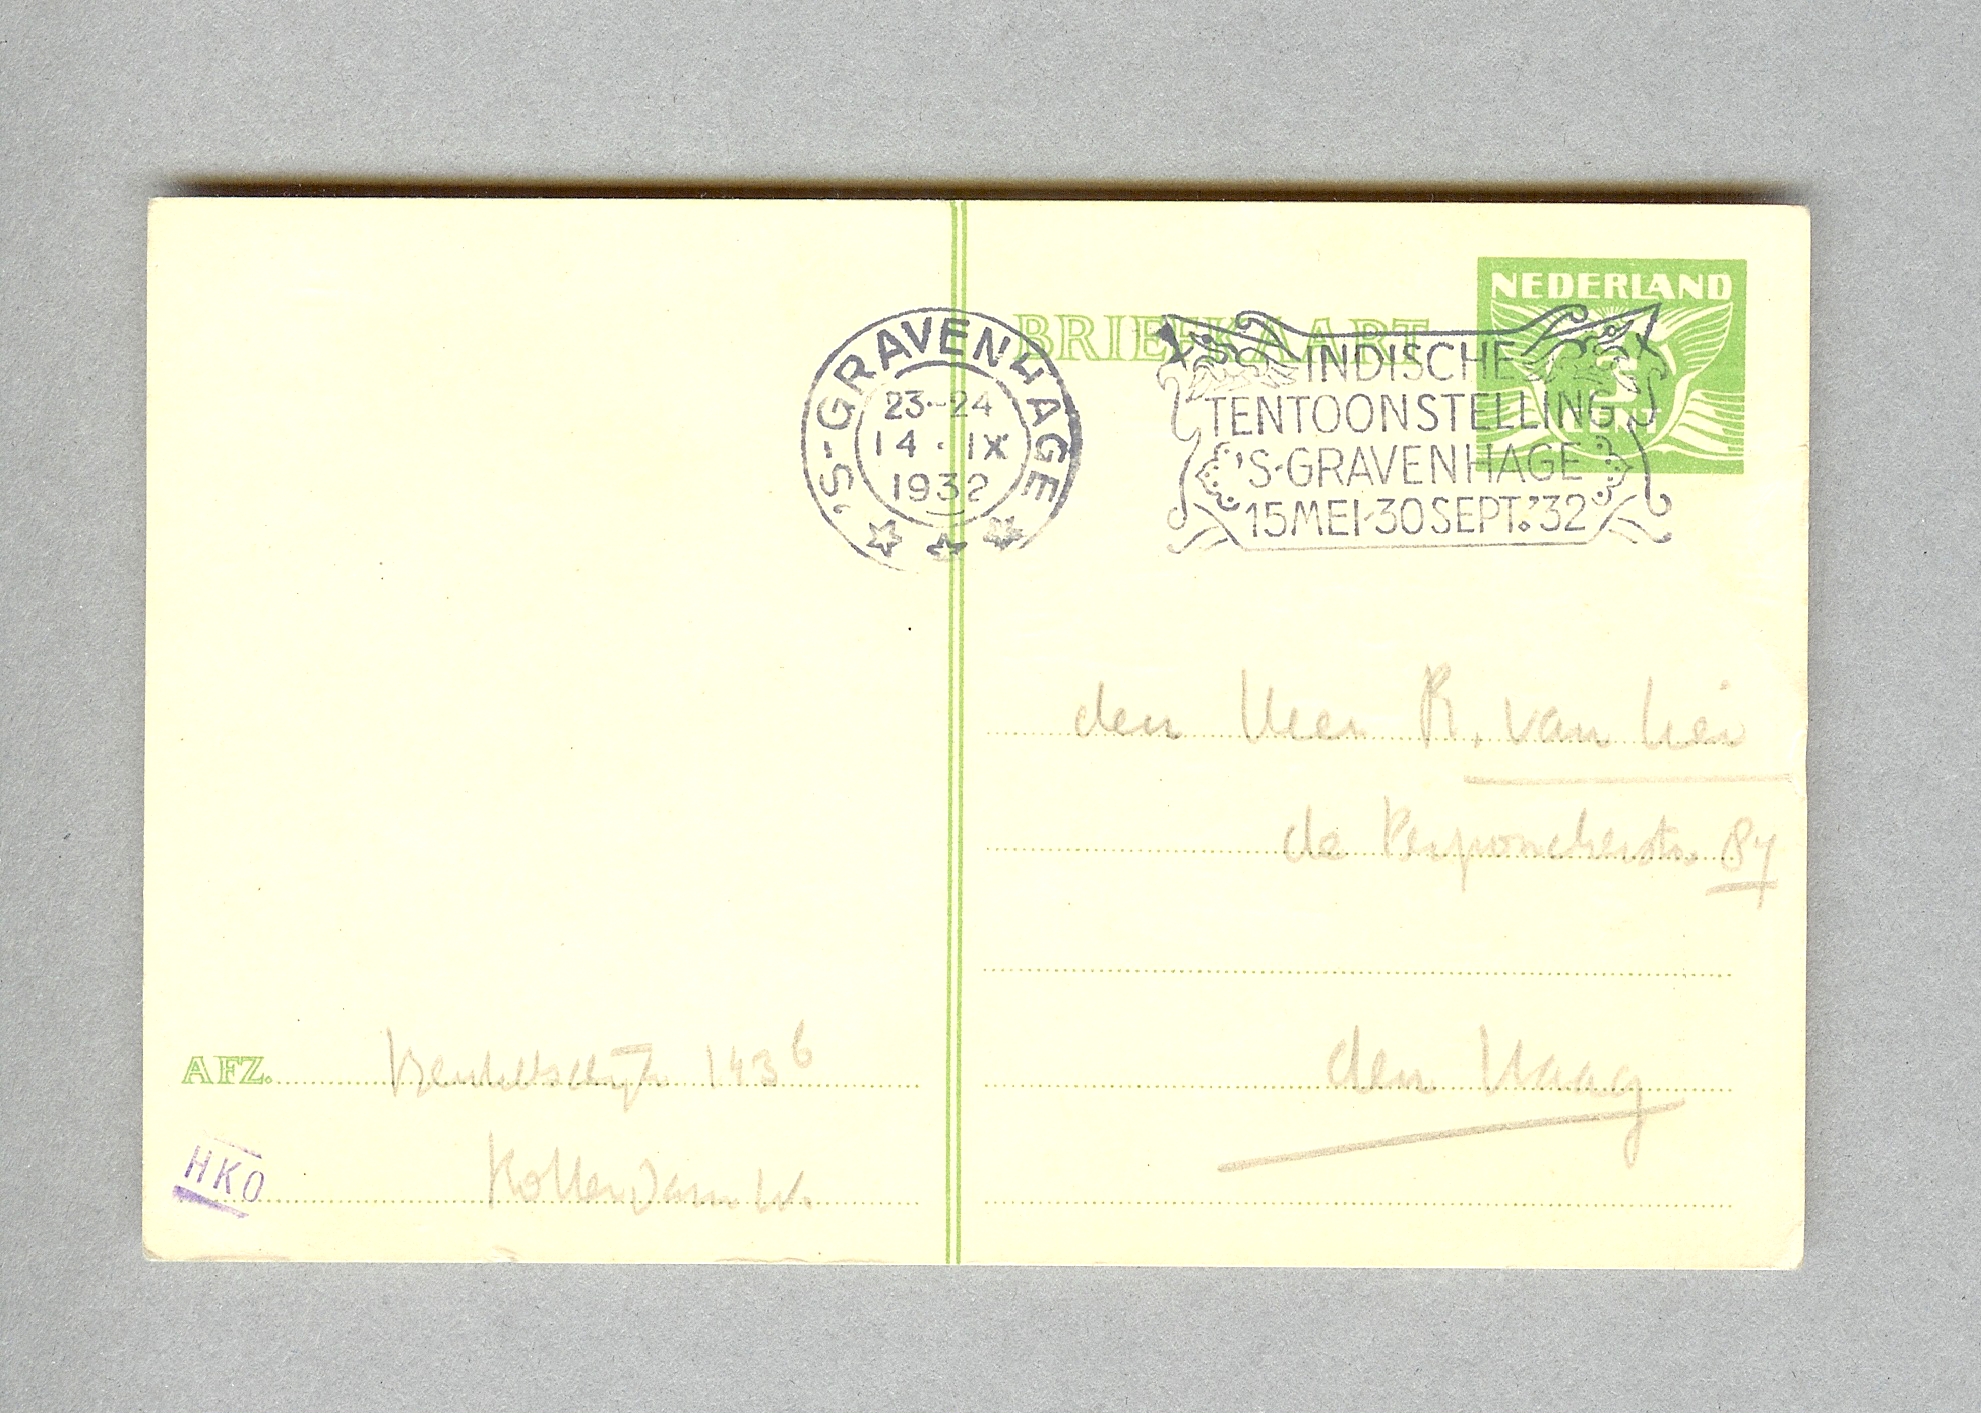 BRIEFKAART
NEDERLAND
CENT
'S-GRAVENHAGE
23-24
14·IX
1932
INDISCHE
TENTOONSTELLING
'S-GRAVENHAGE
15 MEI-30 SEPT. '32
den Heer R. van
de Perponcherstr. 87
den Haag
AFZ. Beukelsdijk 143b
Rotterdam W.
HKO